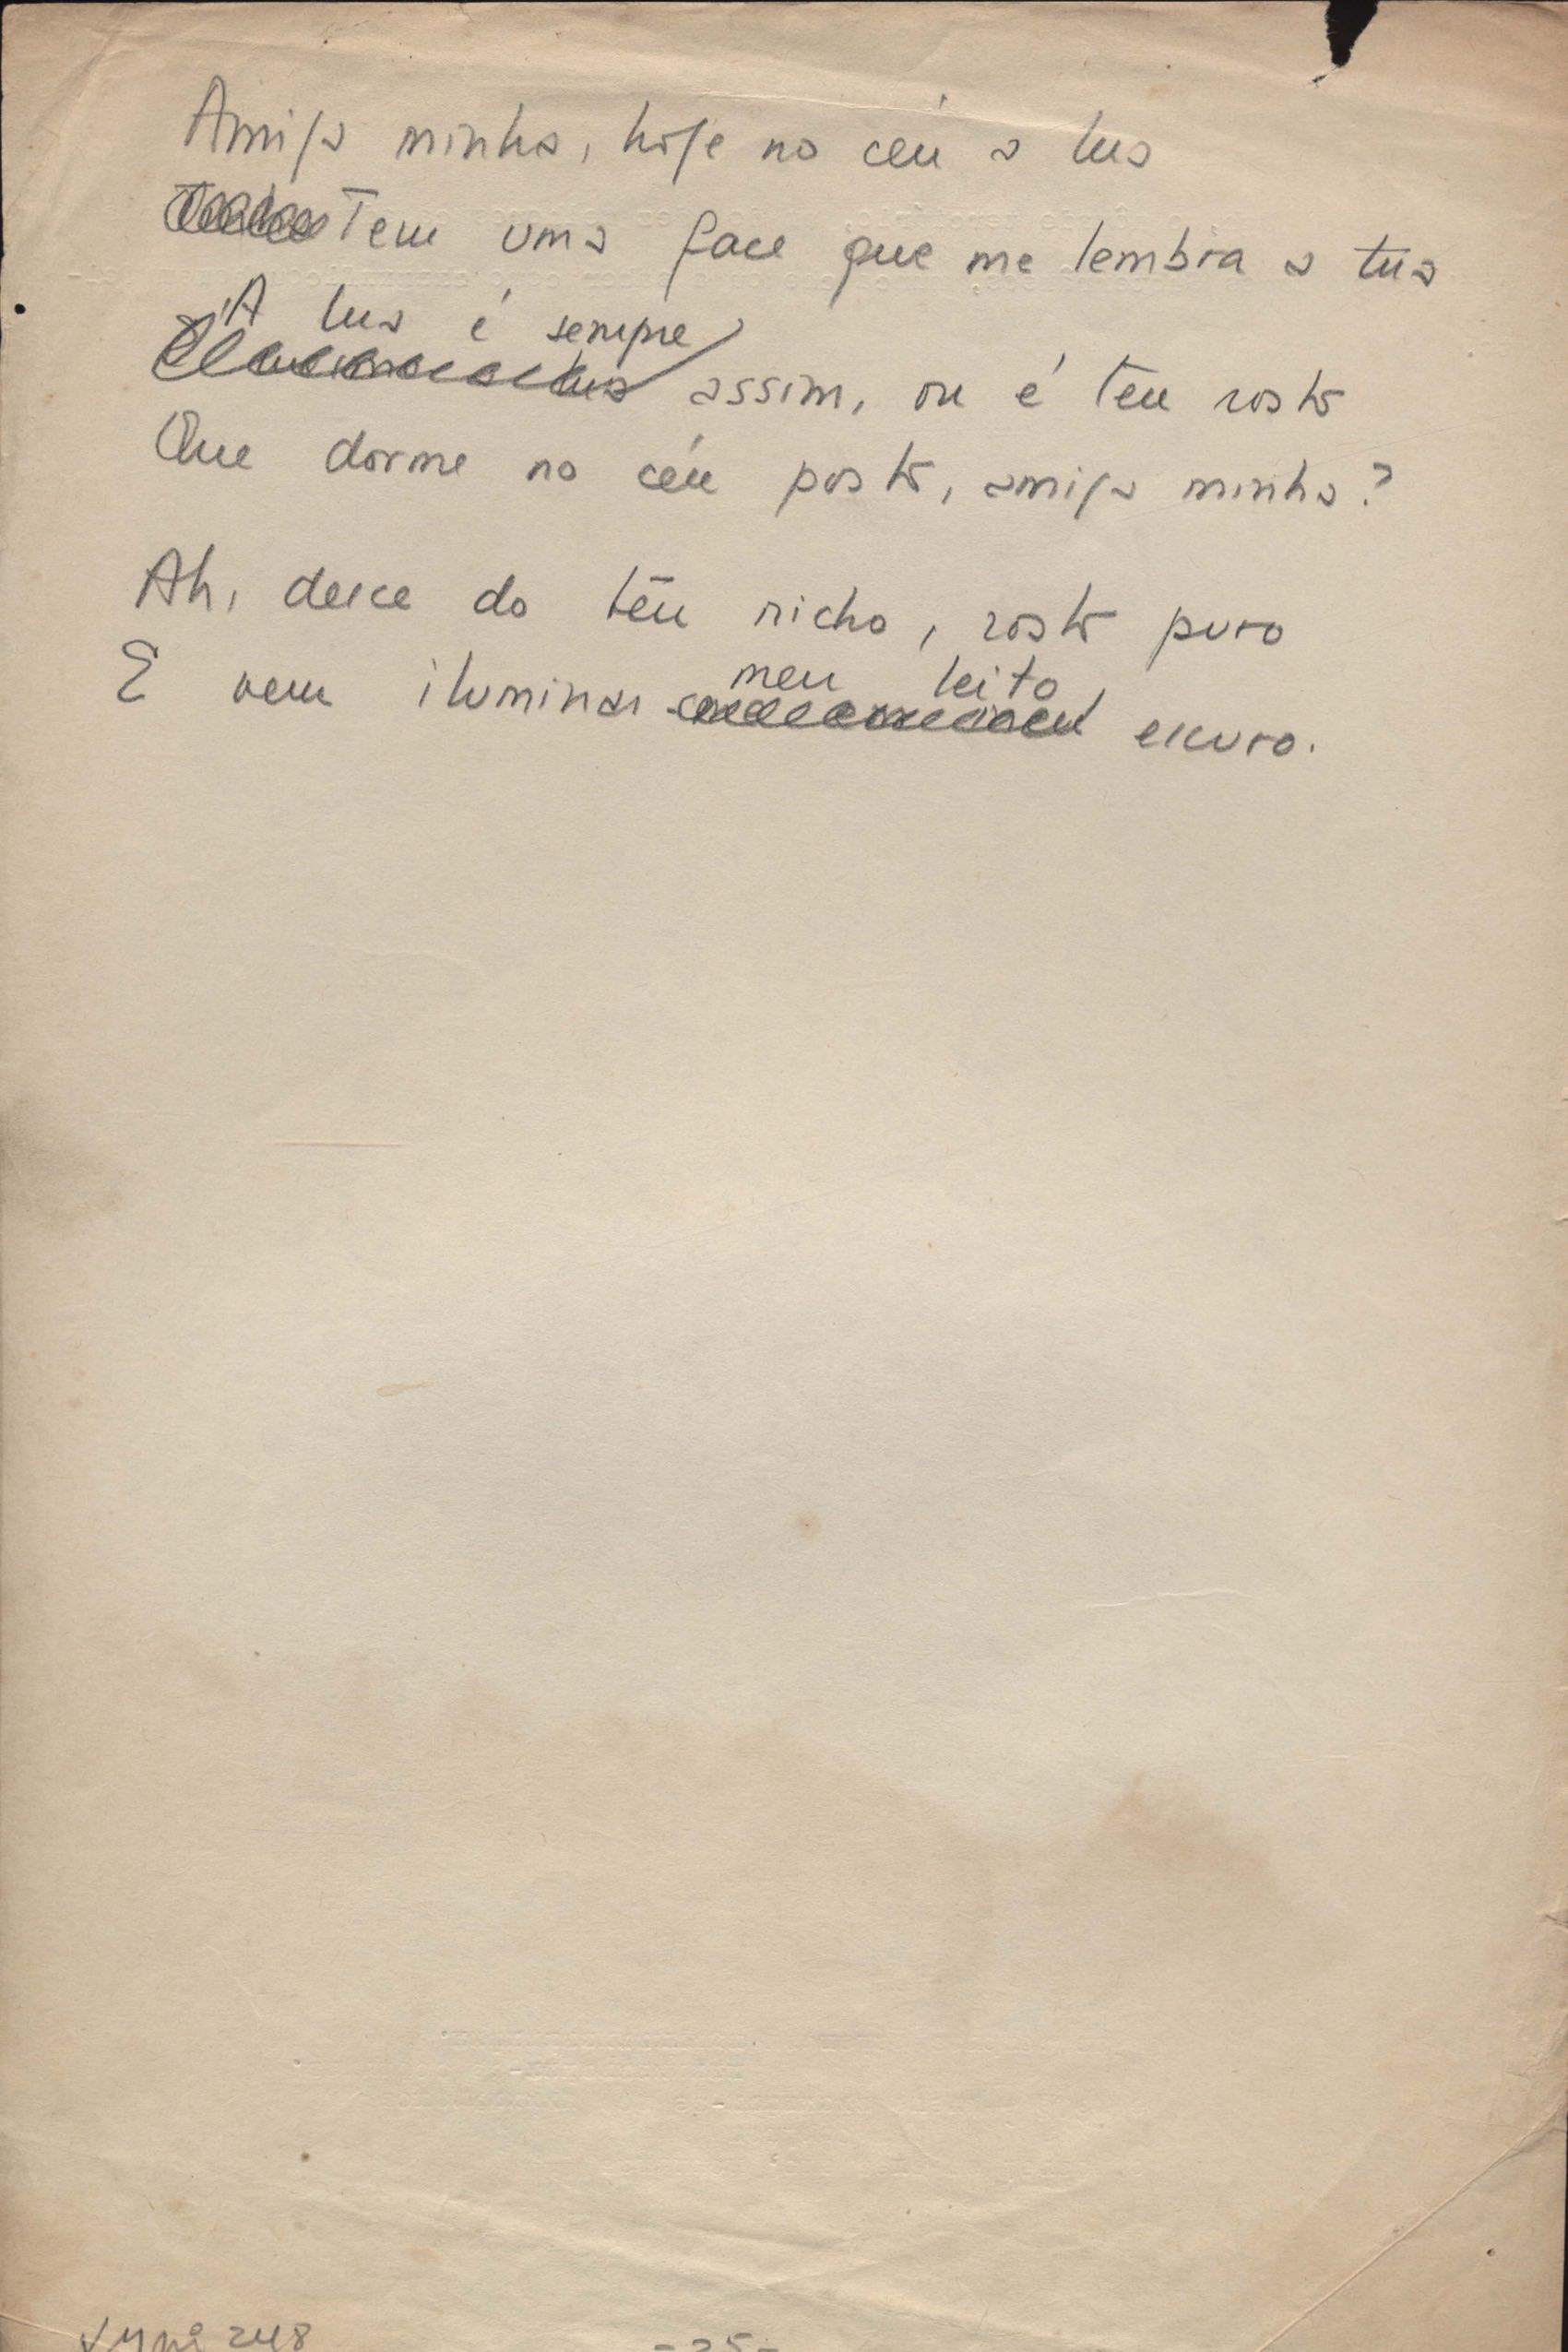 Amiga minha, hoje no céu a lua
Tem uma face que me lembra a tua
A lua é sempre
assim, ou é teu rosto
Que dorme no céu posto, amiga minha?
Ah, desce do teu nicho, rosto puro
E vem iluminar meu leito escuro.
248
-25-